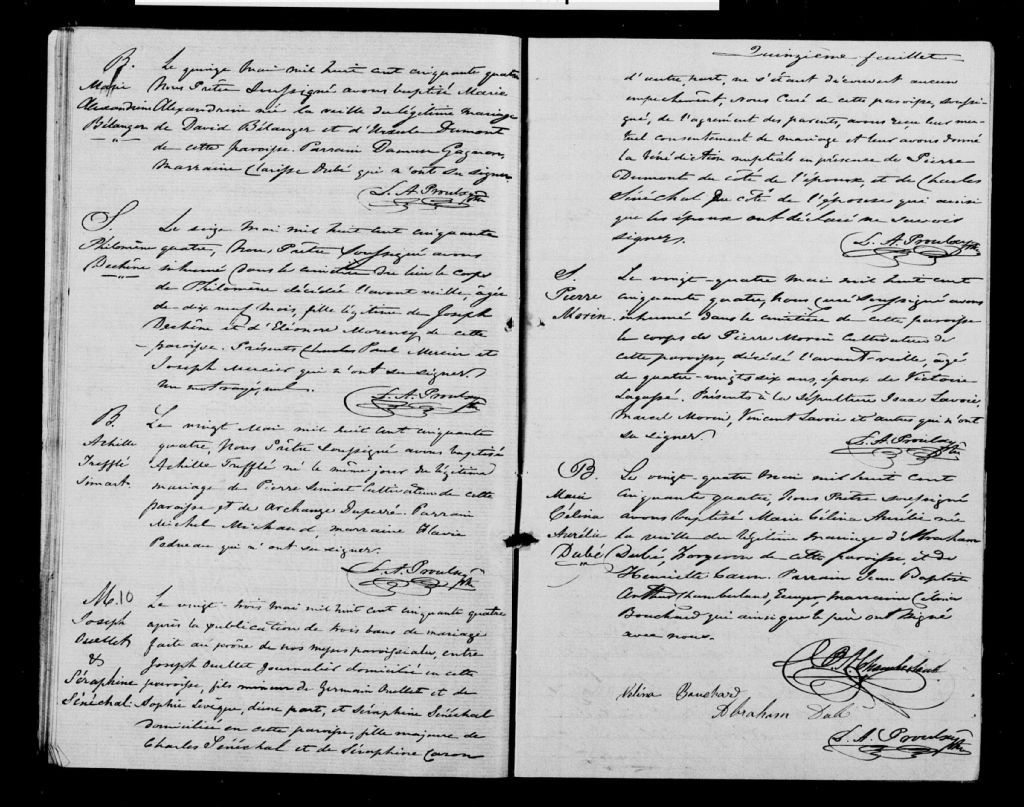 B.
Marie
Alexandrine
Bélanger
Le quinze Mai mil huit cent cinquante quatre
Nous Prêtre Soussigné avons baptisé Marie
Alexandrine née la veille du légitime mariage
de David Bélanger et d'Ursule Dumont
de cette paroisse. Parrain Damase Gagnon,
marraine Clarisse Dubé qui n'ont su signer.
L. A. Proulx Ptre
S.
Philomène
Bechêne
Le seize Mai mil huit cent cinquante
quatre, Nous Prêtre Soussigné avons
inhumé dans le cimetière du lieu le corps
de Philomène décédée l'avant veille, âgée
de dix neuf mois, fille légitime de Joseph
Bechêne et d'Eléonore Morency de cette
paroisse. Présents Charles Paul Mercier et
Joseph Mercier qui n'ont su signer.
Un mot rayé, nul.
L. A. Proulx Ptre
B.
Achille
Treffle
Simart.
Le vingt Mai mil huit cent cinquante
quatre, Nous Prêtre Soussigné avons baptisé
Achille Trefflé né le même jour du légitime
mariage de Pierre Simart Cultivateur de cette
paroisse et de Archange Duperré. Parrain
Michel Michaud, marraine Flavie
Nadeau qui n'ont su signer.
L. A. Proulx Ptre
M. 10
Joseph
Ouellet
&
Séraphine
Sénéchal
Le vingt-trois mai mil huit cent cinquante quatre
après la publication de trois bans de mariage
faite au prône de nos messes paroissiales, entre
Joseph Ouellet Journalier domicilié en cette
paroisse, fils mineur de Germain Ouellet et de
Sophie Levêque, d'une part, et Séraphine Sénéchal
domiciliée en cette paroisse, fille majeure de
Charles Sénéchal et de Séraphine Caron
Quinzième feuillet
d'autre part, ne s'étant découvert aucun
empêchement, Nous Curé de cette paroisse, soussi-
gné, de l'agrément des parents, avons reçu leur mu-
tuel consentement de mariage et leur avons donné
la bénédiction nuptiale en présence de Pierre
Dumont du côté de l'époux, et de Charles
Sénéchal du côté de l'épouse qui ainsi
que les époux ont déclaré ne savoir
signer.
L. A. Proulx Ptre
S
Pierre
Morin
Le vingt-quatre mai mil huit cent
cinquante quatre, Nous Curé Soussigné avons
inhumé dans le cimetière de cette paroisse
le corps de Pierre Morin Cultivateur de
cette paroisse, décédé l'avant-veille, âgé
de quatre-vingts six ans, époux de Victoire
Lagassé. Présents à la Sépulture Isaac Lavoie,
Marcel Morin, Vincent Lavoie et autres qui n'ont
su signer.
L. A. Proulx Ptre
B.
Marie
Célina
Aurélie
Dubé
Le vingt-quatre Mai mil huit cent
cinquante quatre, Nous Prêtre, soussigné
avons baptisé Marie Célina Aurélie née
la veille du légitime mariage d'Abraham
Dubé, Forgeron de cette paroisse, et de
Henriette Caron. Parrain Jean Baptiste
Arthur Chamberland, Ecuyer marraine Célina
Bouchard qui ainsi que le père ont signé
avec nous.
Chamberland
Célina Bouchard
Abraham Dubé
L. A. Proulx Ptre